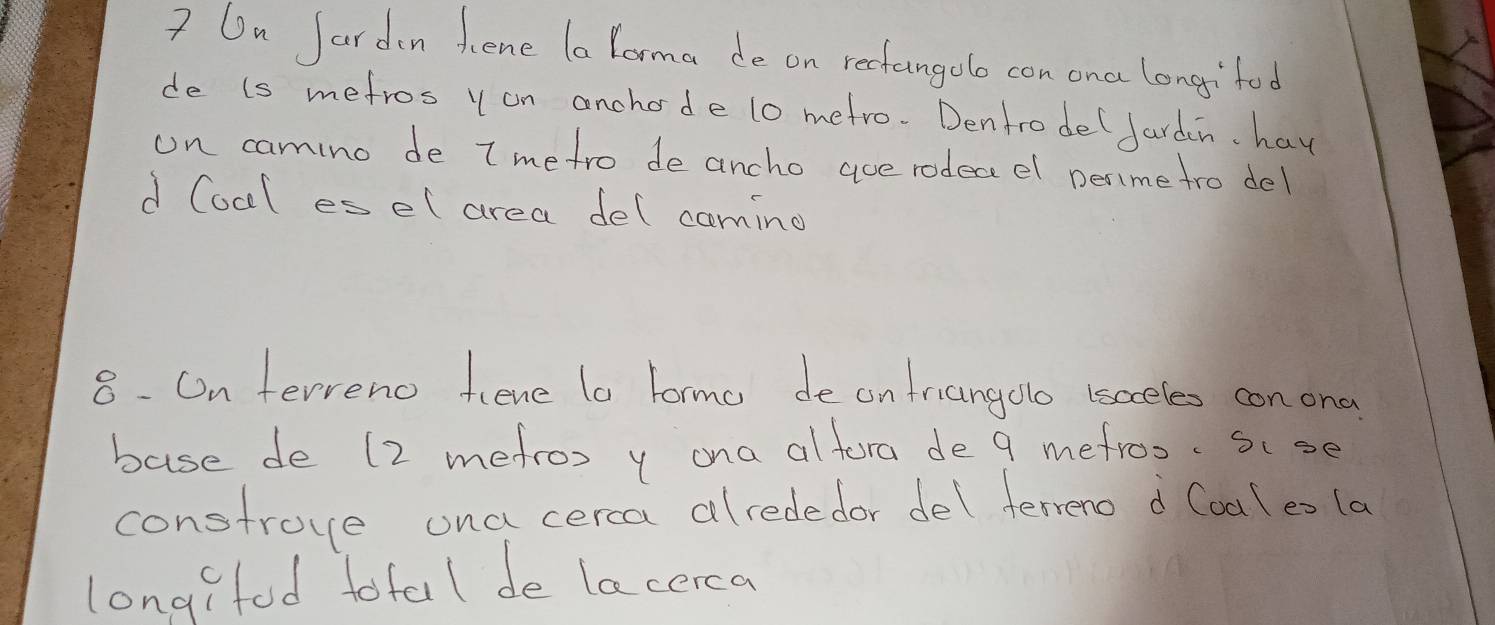 7 Un Jardin tiene la forma de on rectangolo con ona longitod
de 15 metros y on ancho de 10 metro. Dentro del Jardin. hay
on camino de 1 metro de ancho qoe rodea el perimetro del
¿ Coal es el area del camino
8- On terreno tiene la forma de on triangolo isoceles con ona
base de 12 metros y ona altora de 9 metros. Si se
constroye ona cerca alrededor del terreno ¿ Coal es la
longitod total de la cerca